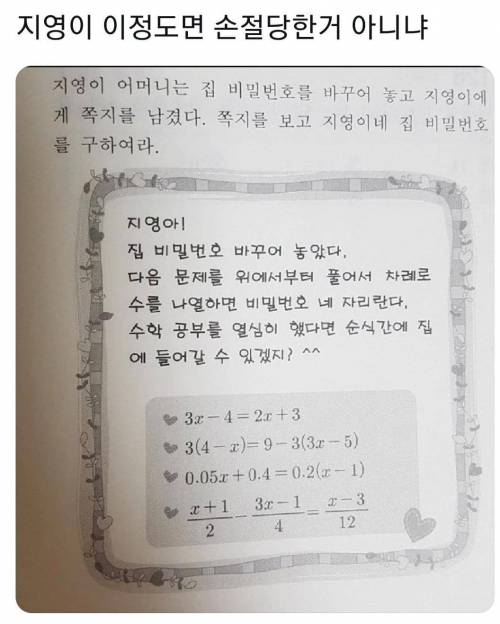 지영이 이정도면 손절당한거 아니냐
지영이 어머니는 집 비밀번호를 바꾸어 놓고 지영이에
게 쪽지를 남겼다. 쪽지를 보고 지영이네 집 비밀번호
를 구하여라.
지영아!
집 비밀번호 바꾸어 놓았다.
다음 문제를 위에서부터 풀어서 차례로
수를 나열하면 비밀번호 네 자리란다.
수학 공부를 열심히 했다면 순식간에 집
에 들어갈 수 있겠지? ^^
3x-4=2x+3
3(4-x)=9-3(3x-5)
0.05x+0.4=0.2(x-1)
(x+1)/2-(3x-1)/4=(x-3)/12